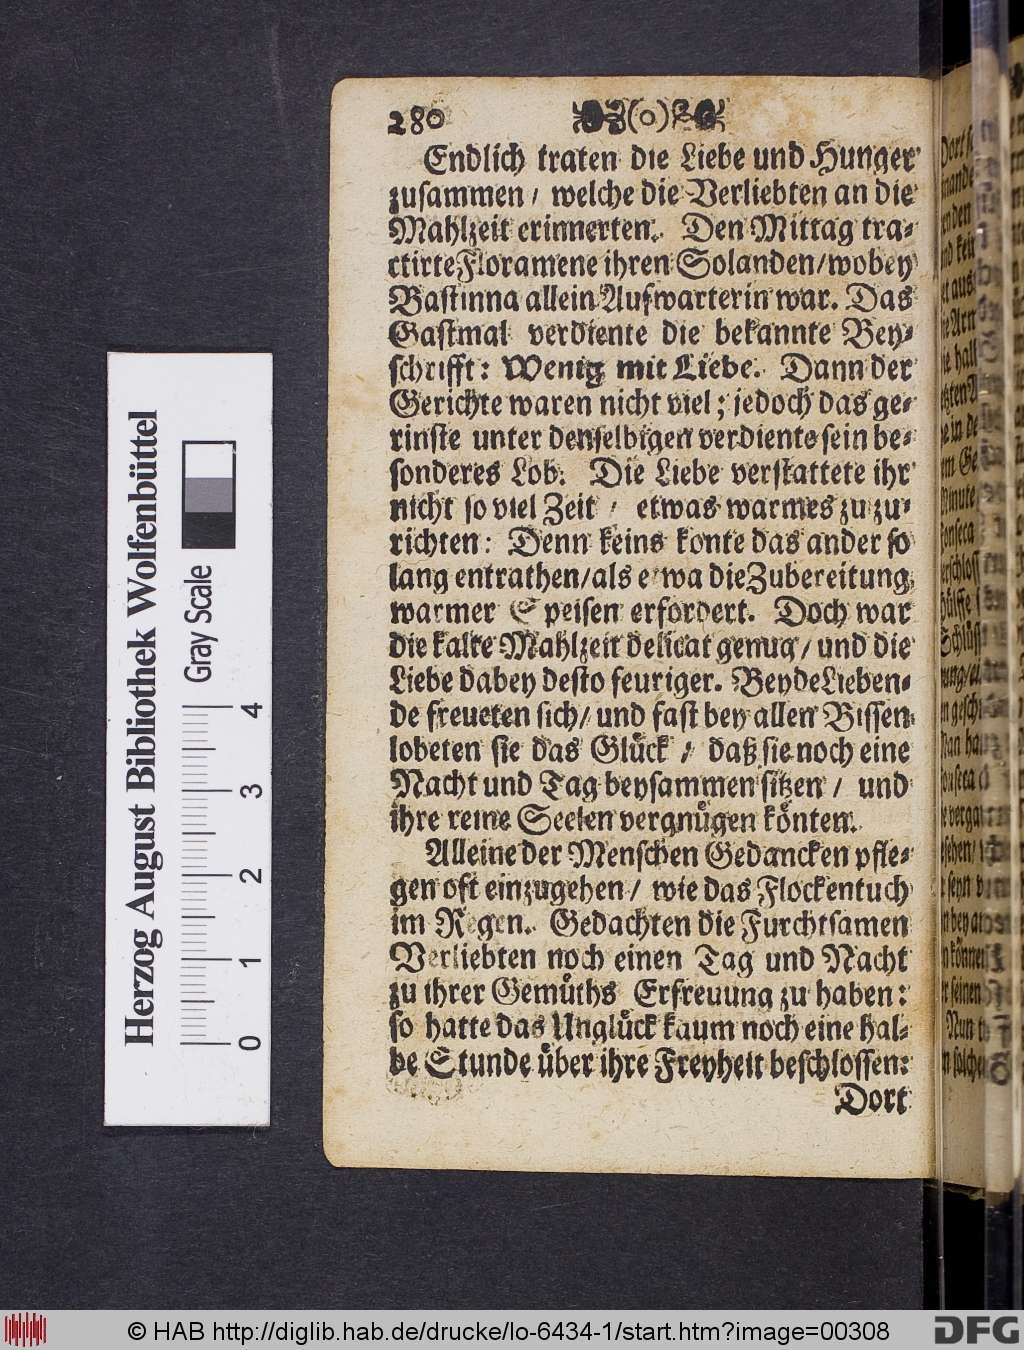 280 (o)
Endlich traten die Liebe und Hunger
zusammen / welche die Verliebten an die
Mahlzeit erinnerten. Den Mittag tra-
ctirte Floramene ihren Solanden / wobey
Bastinna allein Aufwarterin war. Das
Gastmal verdiente die bekannte Bey-
schrifft: Wenig mit Liebe. Dann der
Gerichte waren nicht viel; jedoch das ge-
rinste unter denselbigen verdiente sein be-
sonderes Lob. Die Liebe verstattete ihr
nicht so viel Zeit / etwas warmes zu zu-
richten: Denn keins konte das ander so
lang entrathen / als etwa die Zubereitung
warmer Speisen erfordert. Doch war
die kalte Mahlzeit delicat genug / und die
Liebe dabey desto feuriger. Beyde Lieben-
de freueten sich / und fast bey allen Bissen
lobeten sie das Glück / daß sie noch eine
Nacht und Tag beysammen sitzen / und
ihre reine Seelen vergnügen könten.
Alleine der Menschen Gedancken pfle-
gen oft einzugehen / wie das Flockentuch
im Regen. Gedachten die Furchtsamen
Verliebten noch einen Tag und Nacht
zu ihrer Gemüths Erfreuung zu haben:
so hatte das Unglück kaum noch eine hal-
be Stunde über ihre Freyheit beschlossen:
Dort
Herzog August Bibliothek Wolfenbüttel
Gray Scale
0 1 2 3 4
© HAB http://diglib.hab.de/drucke/lo-6434-1/start.htm?image=00308
DFG